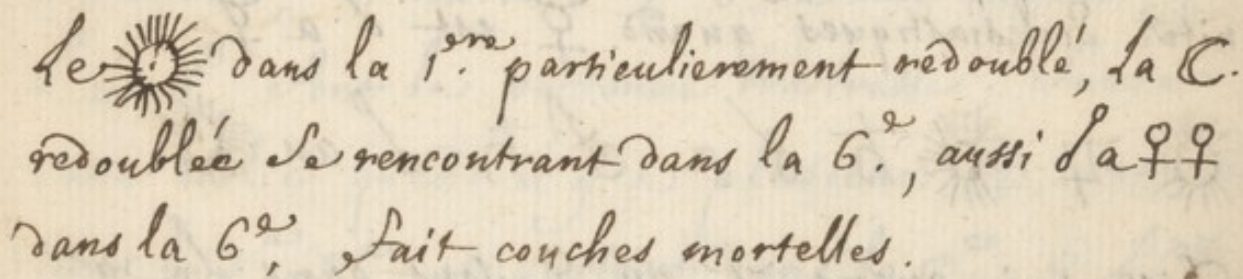 Le ☉ dans la 1.ere particulierement redoublé, La ☾.
redoublée Se rencontrant dans la 6.e, aussi La ♀♀
dans la 6.e, fait couches mortelles.